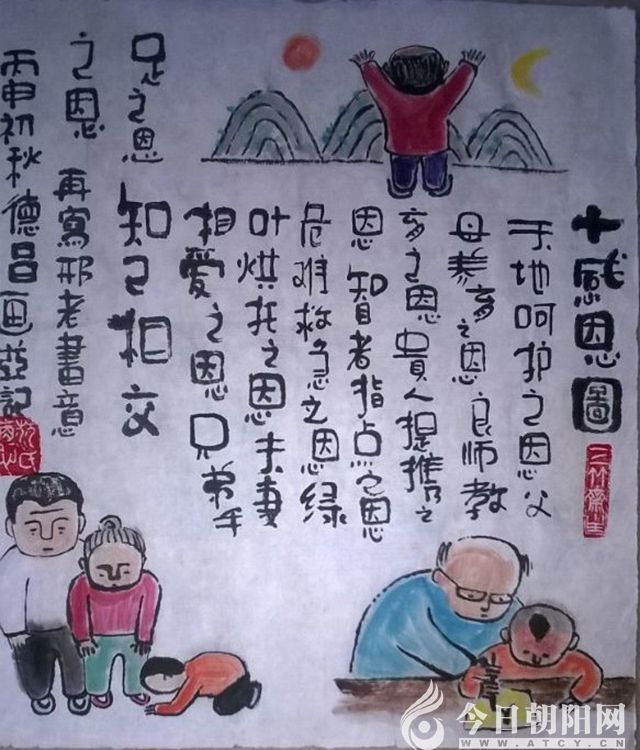 十感恩圖
天地呵护之恩父
母养育之恩良师教
育之恩貴人提携之
恩知智者指点之恩
危难救急之恩绿
叶烘托之恩夫妻
相爱之恩兄弟手
足之恩知己相交
之恩再寫邢老畫意
丙申初秋德吕画並記
三竹齋主
今日朝阳网
WWW.ATCY.CN